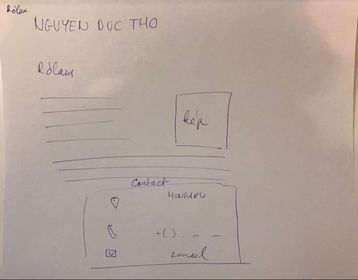 Rólam
NGUYEN DUC THO
Rólam
kép
Contact
+( ) . - -
email